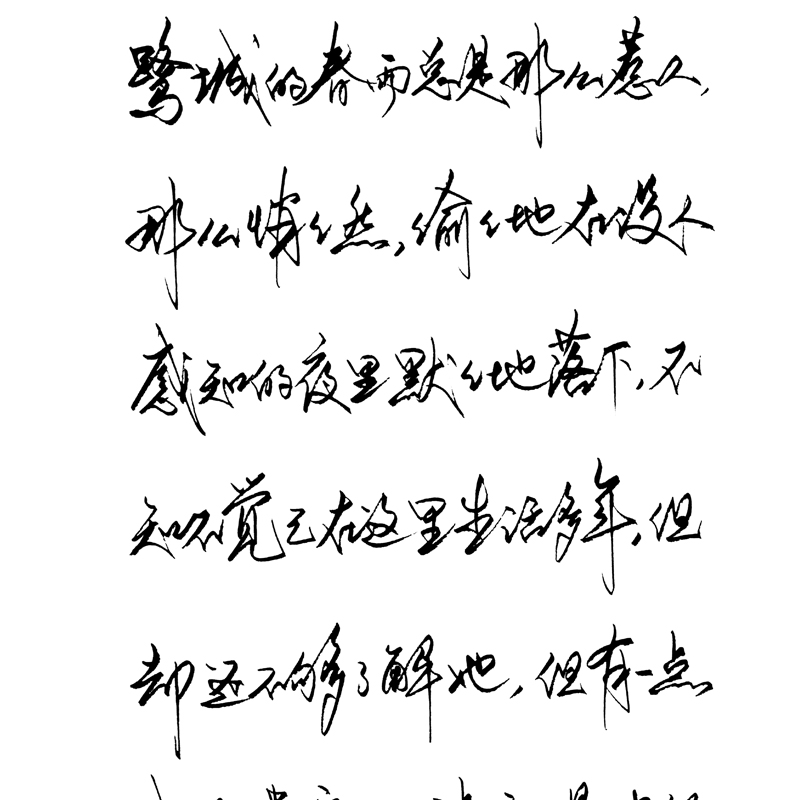 鹭城的春雨总是那么惹人，
那么悄悄然，偷偷地在没人
感知的夜里默默地落下，不
知不觉已在这里生活多年，但
却还不够了解她，但有一点